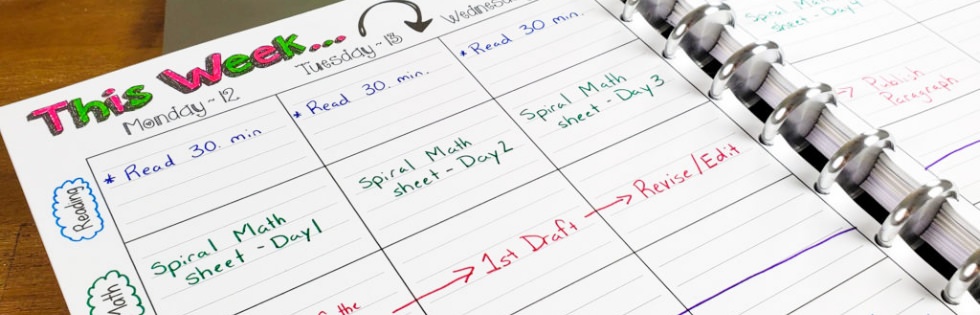 This Week...
Monday ~ 12
Tuesday ~ 13
Wednesday
* Read 30. min
* Read 30. min.
* Read 30 min.
Reading
Spiral Math
sheet - Day 1
Spiral Math
sheet - Day 2
Spiral Math
sheet - Day 3
Spiral Math
sheet - Day 4
Math
the
1st Draft
Revise/Edit
Publish
Paragraph